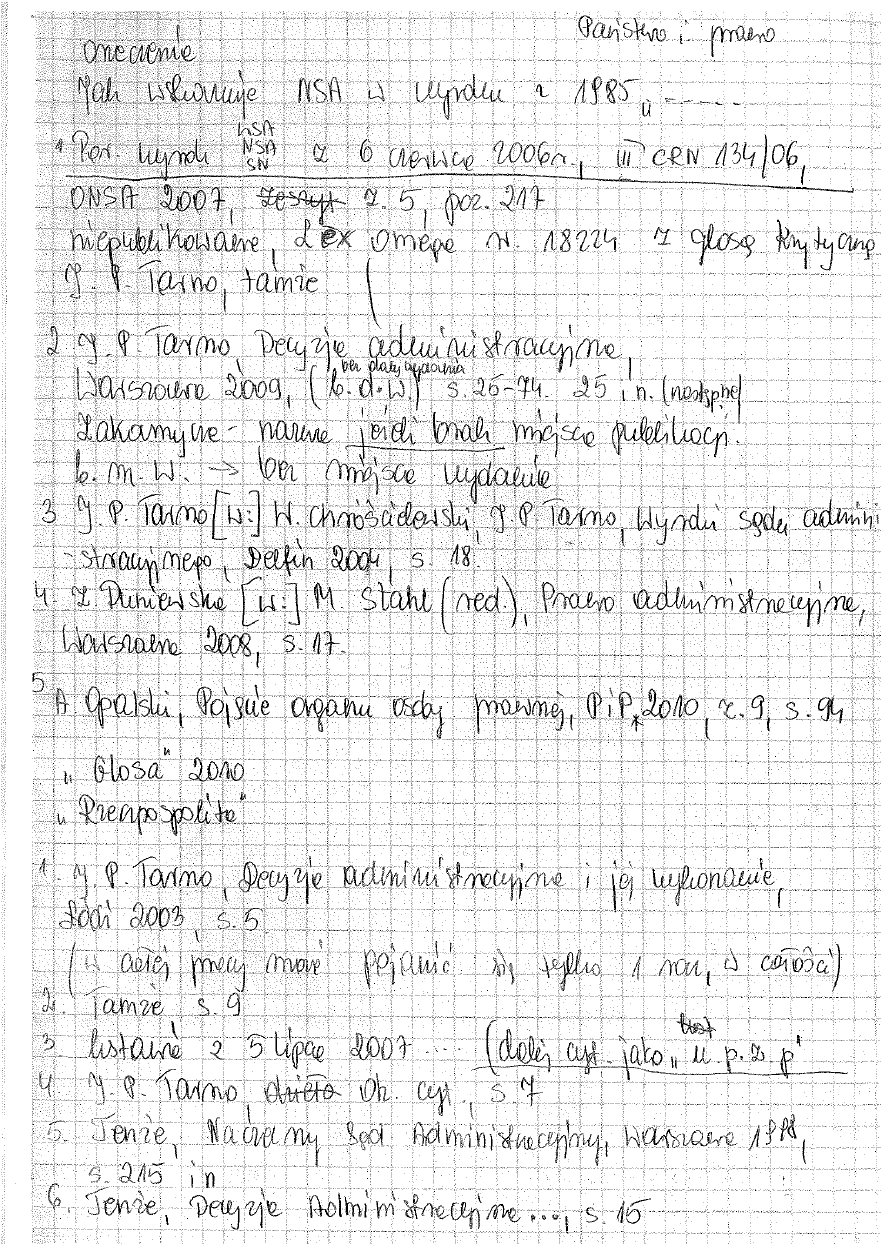 Państwo i prawo
Orzeczenie
Jak wskazuje NSA w wyroku z 1985 „ - - - - -
WSA
1 Por. wyrok NSA z 6 czerwca 2006 r., III CRN 134/06,
SN
ONSA 2007, zeszyt z. 5, poz. 217
niepublikowane, Lex Omega nr. 18224 z glosą krytyczną
J. P. Tarno, tamże (
2 J. P. Tarno, Decyzja administracyjna,
bez daty wydania
Warszawa 2009, (b.d.w.) s. 25-74. 25 i n. (następne)
Zakamycze - nazwa jeżeli brak miejsca publikacji.
b. m. w. → bez miejsca wydania
3 J. P. Tarno [w:] W. Chróścielewski, J. P. Tarno, Wyroki sądu admini
-stracyjnego, Delfin 2004, s. 18.
4. Z Duniewska [w:] M. Stahl (red.), Prawo administracyjne,
Warszawa 2008, s. 17.
5
A Opalski, Pojęcie organu osoby prawnej, PiP * 2010, z. 9, s. 94
„Glosa" 2010
„Rzeczpospolita"
1. J. P. Tarno, Decyzja administracyjna i jej wykonanie,
Łódź 2003, s. 5
(w całej pracy może pojawić się tylko 1 raz, w całości)
2. Tamże s. 9
3 Ustawa z 5 lipca 2007 .... (dalej cyt. jako „u.p.z.p"
4 J. P. Tarno, dzieło Ok. cyt., s 7
5. Tenże, Naczelny Sąd Administracyjny, Warszawa 1998,
s. 215 in
6. Tenże, Decyzja Administracyjna ..., s. 15